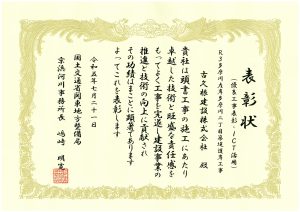 表彰状
(優良工事表彰・ICT活用)
R3多摩川左岸多摩川二丁目築堤護岸工事
古久根建設株式会社 殿
貴社は頭書工事の施工にあたり
卓越した技術と旺盛な責任感を
もってよく工事を完遂し建設事業の
推進と技術の向上に貢献され
その功績はまことに顕著であります
よってこれを表彰します
令和五年七月二十一日
国土交通省関東地方整備局
京浜河川事務所長 嶋崎 明寛